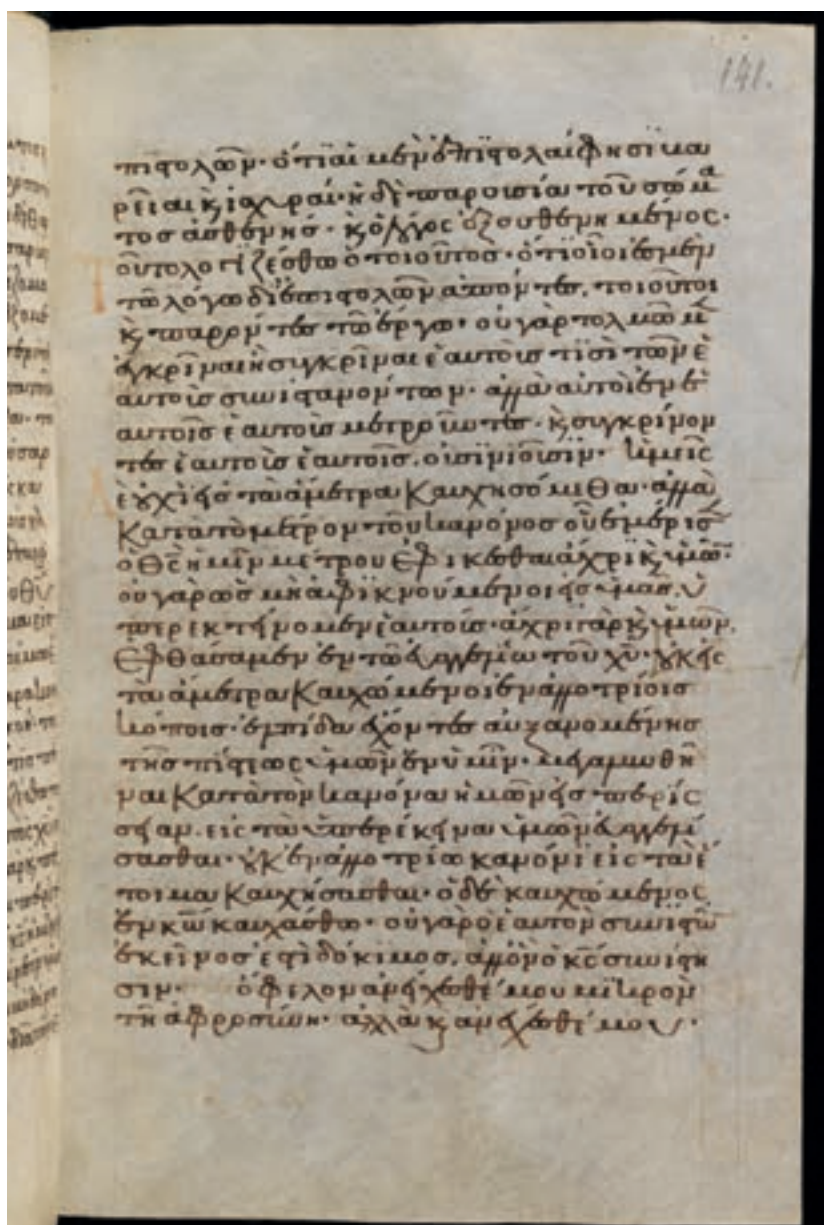 141.
πιστολῶν· ὅτι αἱ μὲν ἐπιστολαὶ φησὶ βα
ρεῖαι κ ἰσχυραί· ἡ δὲ παρουσία τοῦ σώμα
τος ἀσθενὴς· κ ὁ λόγος ἐξουθενημένος·
οὕτο λογιζέσθω ὁ τοιοῦτος· ὅτι οἷοι ἐσμὲν
τῶ λόγω δι ἐπιστολῶν ἀπόντες, τοιοῦτοι
κ παρόντες τῶ ἔργω· οὐ γὰρ τολμῶμεν
ἐγκρῖναι ἢ συγκρῖναι ἑαυτοὺς τισὶ τῶν ἑ
αυτοὺς συνιστανόντων· ἀλλὰ αὐτοὶ ἐν ἑ
αυτοῖς ἑαυτοὺς μετροῦντες· κ συγκρίνον
τες ἑαυτοὺς ἑαυτοῖς, οὐ συνιοῦσιν· ὑμεῖς
ἐυχὶ εἰς τὰ ἄμετρα καυχησόμεθα· ἀλλὰ
κατὰ τὸ μέτρον τοῦ κανόνος οὗ ἐμέρισεν
ὁ θς ἡμῖν μέτρου ἐφικέσθαι ἄχρι κ ὑμῶν·
οὐ γὰρ ὡς μὴ ἀφικνούμενοι εἰς ὑμᾶς, ὑ
περεκτείνομεν ἑαυτούς· ἄχρι γὰρ κ ὑμῶν,
ἐφθάσαμεν ἐν τῶ εὐαγγελίω τοῦ χυ· οὐκ εἰς
τὰ ἄμετρα καυχώμενοι ἐν ἀλλοτρίοις
κόποις· ἐλπίδα ἔχοντες αὐξανομένης
τῆς πίστεως ὑμῶν ἐν ὑμῖν· μεγαλυνθῆ
ναι κατὰ τὸν κανόνα ἡμῶν εἰς περισ
σείαν, εἰς τὰ ὑπερέκεινα ὑμῶν εὐαγγελί
σασθαι· οὐκ ἐν ἀλλοτρίω κανόνι εἰς τὰ ἕ
τοιμα καυχήσασθαι· ὁ δὲ καυχώμενος
ἐν κω καυχάσθω· οὐ γὰρ ὁ ἑαυτὸν συνιστῶν
ἐκεῖνος ἐστὶ δόκιμος, ἀλλ ὃν ὁ κς συνίστη
σιν· ὄφελον ἀνείχεσθέ μου μικρὸν
τῆ ἀφροσύνη· ἀλλὰ κ ἀνέχεσθέ μου·